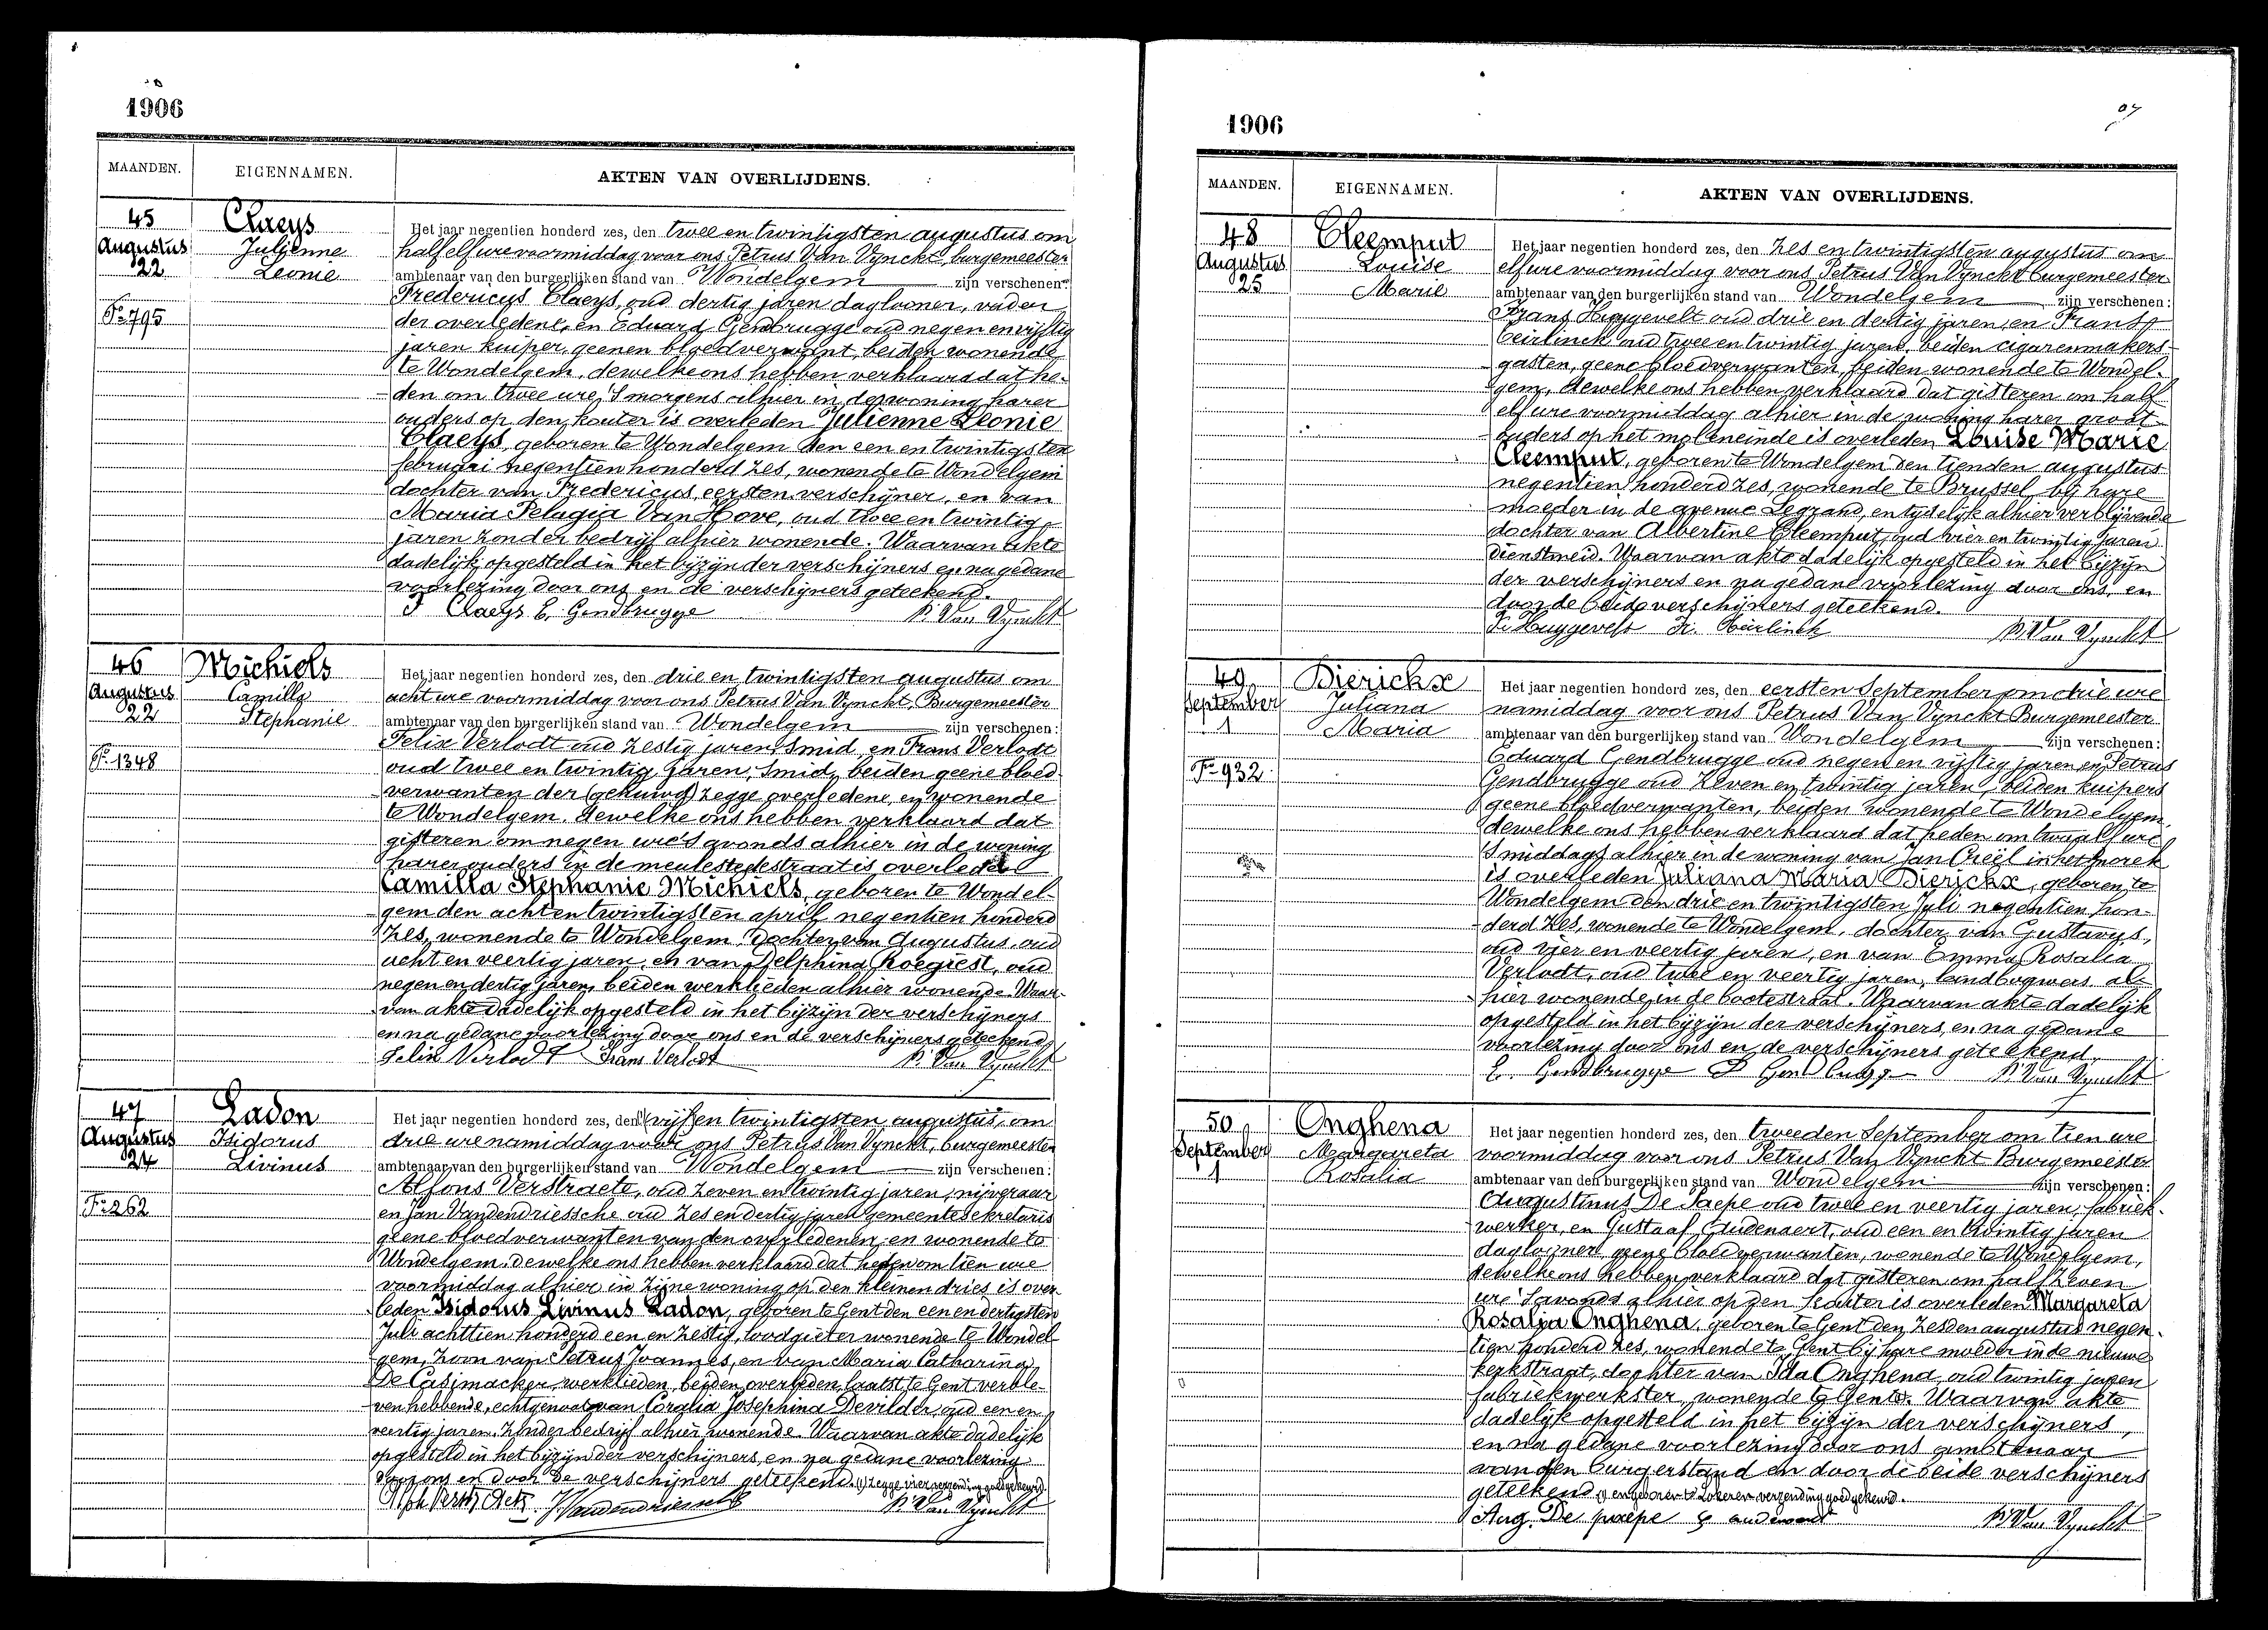 1906
MAANDEN. EIGENNAMEN. AKTEN VAN OVERLIJDENS.
45 Claeys
Augustus Julienne
22 Leonie
F° 795
Het jaar negentien honderd zes, den twee en twintigsten augustus om
half elf ure voormiddag voor ons Petrus Van Vynckt, burgemeester
ambtenaar van den burgerlijken stand van Wondelgem zijn verschenen:
Fredericus Claeys, oud dertig jaren daglooner, vader
der overledene, en Eduard Gendbrugge oud negen en vijftig
jaren kuiper, geenen bloedverwant, beiden wonende
te Wondelgem, dewelke ons hebben verklaard dat he-
den om twee ure 's morgens alhier in de woning harer
ouders op den kouter is overleden Julienne Leonie
Claeys, geboren te Wondelgem den een en twintigsten
februari negentien honderd zes, wonende te Wondelgem
dochter van Fredericus, eersten verschijner, en van
Maria Pelagia Van Hove, oud twee en twintig
jaren zonder bedrijf alhier wonende. Waarvan akte
dadelijk opgesteld in het bijzijn der verschijners en na gedane
voorlezing door ons en de verschijners geteekend.
F Claeys E. Gendbrugge P. Van Vynckt
46 Michiels
Augustus Camilla
22 Stephanie
F° 1348
Het jaar negentien honderd zes, den drie en twintigsten augustus om
acht ure voormiddag voor ons Petrus Van Vynckt, Burgemeester
ambtenaar van den burgerlijken stand van Wondelgem zijn verschenen:
Felix Verlodt oud zestig jaren, smid, en Frans Verlodt
oud twee en twintig jaren, smid, beiden geene bloed-
verwanten der (gehuwd) zegge overledene, en wonende
te Wondelgem, dewelke ons hebben verklaard dat
gisteren om negen ure 's avonds alhier in de woning
harer ouders in de meulestedestraat is overleden
Camilla Stephanie Michiels, geboren te Wondel-
gem den acht en twintigsten april negentien honderd
zes, wonende te Wondelgem, dochter van Augustus, oud
acht en veertig jaren, en van Delphina Roegiest, oud
negen en dertig jaren, beiden werklieden alhier wonende. Waar-
van akte dadelijk opgesteld in het bijzijn der verschijners
en na gedane voorlezing door ons en de verschijners geteekend,
Felix Verlodt Frans Verlodt P. Van Vynckt
47 Ladon
Augustus Isidorus
24 Livinus
F° 262
Het jaar negentien honderd zes, den (1) vijf en twintigsten augustus, om
drie ure namiddag voor ons Petrus Van Vynckt, burgemeester
ambtenaar van den burgerlijken stand van Wondelgem zijn verschenen:
Alfons Verstraete, oud zeven en twintig jaren, nijveraar
en Jan Vandendriessche oud zes en dertig jaren gemeentesekretaris
geene bloedverwanten van den overledenen, en wonende te
Wondelgem, dewelke ons hebben verklaard dat heden om tien ure
voormiddag alhier in zijne woning op den kleinen dries is over-
leden Isidorus Livinus Ladon, geboren te Gent den een en dertigsten
Juli achttien honderd een en zestig, loodgieter wonende te Wondel-
gem, zoon van Petrus Joannes, en van Maria Catharina
De Casimacker, werklieden, beiden overleden, laatst te Gent verble-
ven hebbende, echtgenoot van Coralia Josephina Devilder, oud een en
veertig jaren, zonder bedrijf alhier wonende. Waarvan akte dadelijk
opgesteld in het bijzijn der verschijners, en na gedane voorlezing
door ons en door de verschijners geteekend. (1) zegge vier verzending goedgekeurd.
Alph Verstraete J. Vandendriessche P. Van Vynckt
1906
MAANDEN. EIGENNAMEN. AKTEN VAN OVERLIJDENS.
48 Cleemput
Augustus Louise
25 Marie
Het jaar negentien honderd zes, den zes en twintigsten augustus om
elf ure voormiddag voor ons Petrus Van Vynckt burgemeester
ambtenaar van den burgerlijken stand van Wondelgem zijn verschenen:
Frans Huggevelt oud drie en dertig jaren, en Frans
Ceirlinck, oud twee en twintig jaren, beiden cigarenmakers-
gasten, geene bloedverwanten, beiden wonende te Wondel-
gem, dewelke ons hebben verklaard dat gisteren om half
elf ure voormiddag alhier in de woning harer groot-
ouders op het moleneinde is overleden Louise Marie
Cleemput, geboren te Wondelgem den tienden augustus
negentien honderd zes, wonende te Brussel bij hare
moeder in de avenue Legrand, en tydelijk alhier verblijvende
dochter van Albertine Cleemput, oud vier en twintig jaren
dienstmeid. Waarvan akte dadelijk opgesteld in het bijzijn
der verschijners en na gedane voorlezing door ons, en
door de beide verschijners geteekend.
Fr. Huggevelt Fr. Ceirlinck P. Van Vynckt
49 Dierickx
September Juliana
1 Maria
F° 932
Het jaar negentien honderd zes, den eersten September om drie ure
namiddag voor ons Petrus Van Vynckt Burgemeester
ambtenaar van den burgerlijken stand van Wondelgem zijn verschenen:
Eduard Gendbrugge oud negen en vijftig jaren en Petrus
Gendbrugge oud zeven en twintig jaren, beiden kuipers
geene bloedverwanten, beiden wonende te Wondelgem,
dewelke ons hebben verklaard dat heden om twaalf ure
's middags alhier in de woning van Jan Creël in het
is overleden Juliana Maria Dierickx, geboren te
Wondelgem den drie en twintigsten Juli negentien hon-
derd zes, wonende te Wondelgem, dochter van Gustavus,
oud vier en veertig jaren, en van Emma Rosalia
Verlodt, oud twee en veertig jaren, landbouwers al-
hier wonende in de bootestraat. Waarvan akte dadelijk
opgesteld in het bijzijn der verschijners, en na gedane
voorlezing door ons en de verschijners geteekend.
E. Gendbrugge P Gendbrugge P. Van Vynckt
50 Onghena
September Margareta
1 Rosalia
Het jaar negentien honderd zes, den tweeden September om tien ure
voormiddag voor ons Petrus Van Vynckt Burgemeester
ambtenaar van den burgerlijken stand van Wondelgem zijn verschenen:
Augustinus De Paepe oud twee en veertig jaren, fabriek-
werker, en Gustaaf Audenaert, oud een en twintig jaren
daglooner, geene bloedverwanten, wonende te Wondelgem,
dewelke ons hebben verklaard dat gisteren om half zeven
ure 's avonds alhier op den kouter is overleden Margareta
Rosalia Onghena, geboren te Gent den zesden augustus negen-
tien honderd zes, wonende te Gent bij hare moeder in de nieuwe
kerkstraat, dochter van Ida Onghena, oud twintig jaren
fabriekwerkster, wonende te Gent (1). Waarvan akte
dadelijk opgesteld in het bijzijn der verschijners,
en na gedane voorlezing door ons ambtenaar
van den burgerstand en door de beide verschijners
geteekend (1) en geboren te Lokeren verzending goedgekeurd.
Aug. De paepe G audenaert P. Van Vynckt